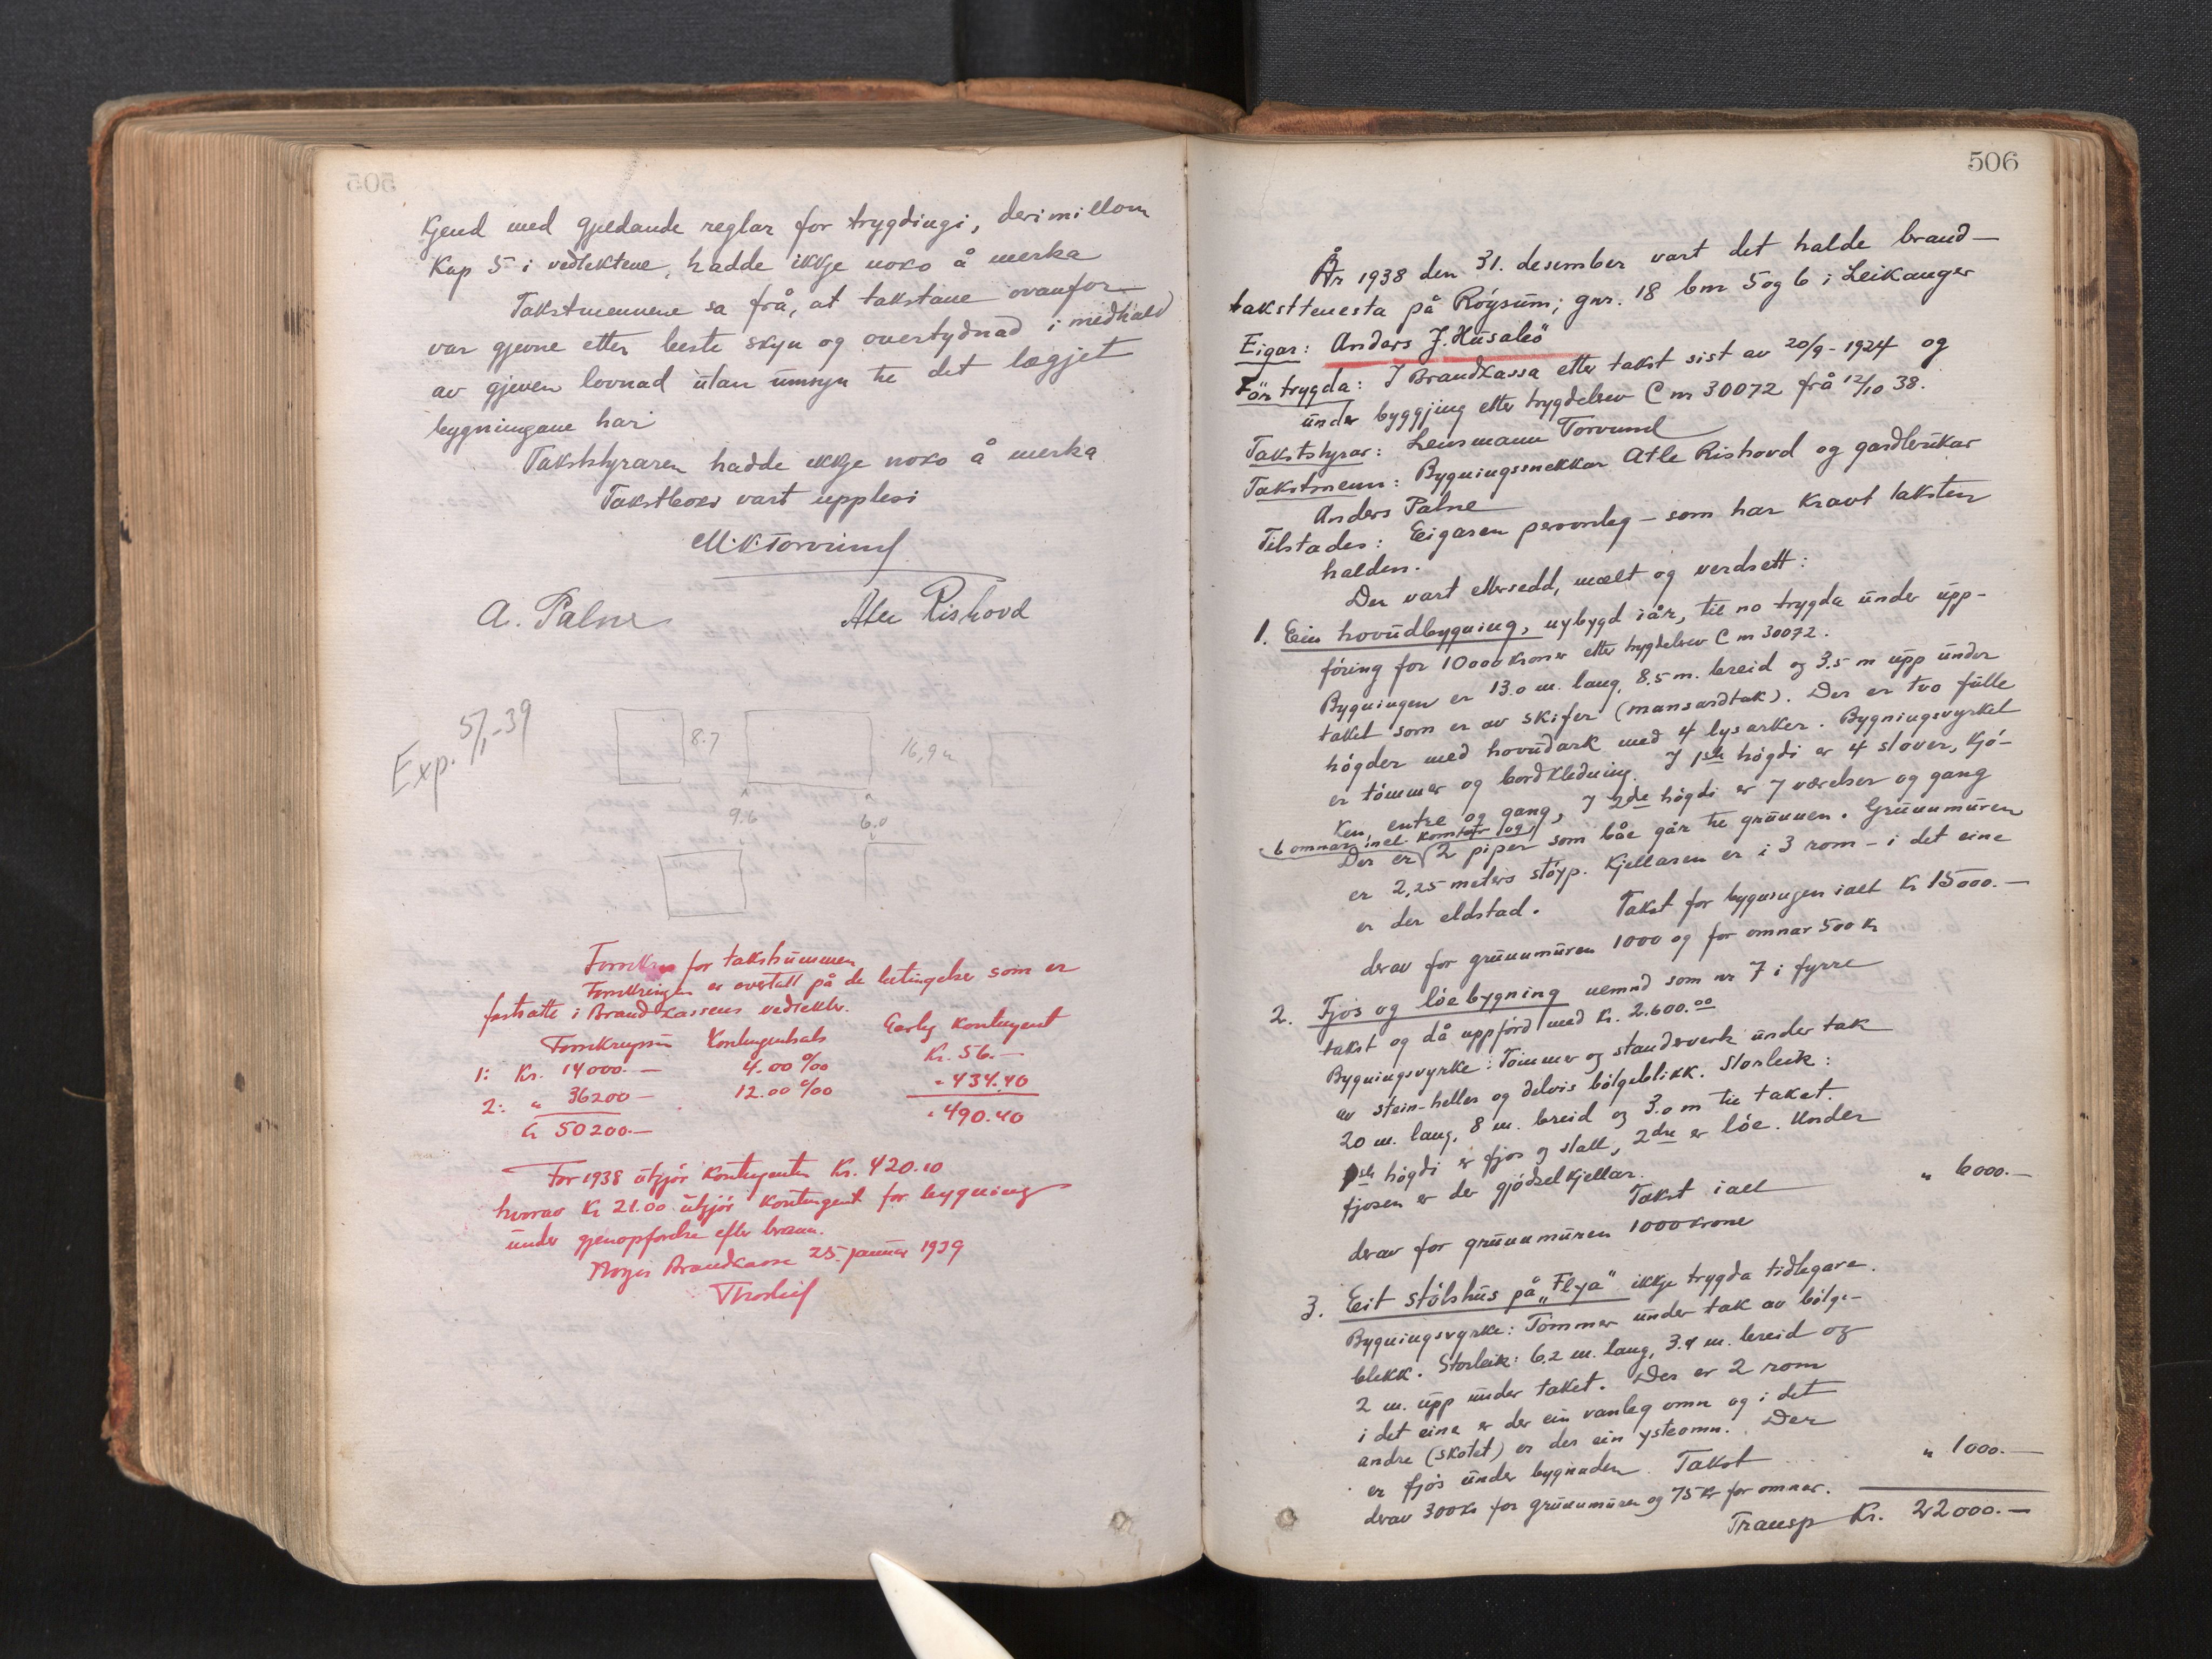 505
Kjend med gjeldande reglar for trygdingi, derimillom
Kap 5 i vedtektene, hadde ikkje noko å merka
Takstmennene sa frå, at takstane ovanfor
var gjevne etter beste skyn og overtydnad i medhald
av gjeven lovnad utan umsyn te det lægjet
bygningane har
Takststyraren hadde ikkje noko å merka
Takstboki vart upplesi
M.K. Torvund
A. Palne Atle Rishovd
Exp. 5/1-39
8.7 16,9
9.6 6.0
for takstsummen
Forsikringen er overtatt på de betingelser som er
fastsatte i Brandkassens vedtekter.
Kontingentsats Kontingent
1: Kr. 14000.— 4.00 ‰ Kr. 56.—
2: " 36200— 12.00 ‰ " 434.40
Kr 50200.— " 490.40
For 1938 utgjør kontingenten Kr. 420.10
hvorav Kr 21.00 utgjør kontingent for bygning
under gjenopførelse efter brann.
Norges Brandkasse 25. januar 1939
506
År 1938 den 31. desember vart det halde brand-
taksttenesta på Røysum; gnr. 18 bnr 5 og 6 i Leikanger
Eigar: Anders J. Husabø
Før trygda: I Brandkassa etter takst sist av 20/9-1924 og
under byggjing etter trygdebrev C nr 30072 frå 12/10 38.
Takststyrar: Lensmann Torvund
Takstmenn: Bygningssnekkar Atle Rishovd og gardbrukar
Anders Palne
Tilstades: Eigaren personleg – som har kravt taksten
halden.
Der vart ettersedd, mælt og verdsett:
1. Ein hovudbygning, nybygd i år, til no trygda under upp-
føring for 10000 kroner etter trygdebrev C nr 30072.
Bygningen er 13.0 m. lang, 8.5 m. breid og 3.5 m upp under
taket som er av skifer (mansardtak). Der er tvo fulle
høgder med hovudark med 4 lysarker. Bygningsvyrket
er tømmer og bordkledning. I 1ste høgdi er 4 stover, kjø-
ken, entre og gang, I 2dre høgdi er 7 værelser og gang
6 omnar inel. komfyr og
Der er 2 piper som båe går te grunnen. Grunnmuren
er 2,25 meters støyp. Kjellaren er i 3 rom – i det eine
er der eldstad. Takst for bygningen ialt Kr 15000.—
derav for grunnmuren 1000 og for omnar 500 Kr
2. Fjøs og løebygning nemnd som nr 7 i fyrre
takst og då uppførd med Kr. 2.600.00
Bygningsvyrke: Tømmer og standerverk under tak
av stein-heller og delvis bølgeblikk. Storleik:
20 m. lang, 8 m. breid og 3.0 m til taket.
1ste høgdi er fjøs og stall, 2dre er løe. Under
fjosen er der gjødselkjellar.
Takst ialt " 6000.—
derav for grunnmuren 1000 krone
3. Eit stølshus på „Flya" ikkje trygda tidlegare.
Bygningsvyrke: Tømmer under tak av bølge-
blekk. Storleik: 6.2 m. lang, 3.9 m. breid og
2 m. upp under taket. Der er 2 rom
i det eine er der ein vanleg omn og i det
andre (skotet) er der ein ysteomn. Der
er fjøs under bygnaden. Takst " 1000.—
derav 300 Kr for grunnmuren og 75 Kr for omnar.
Transp Kr. 22000.—